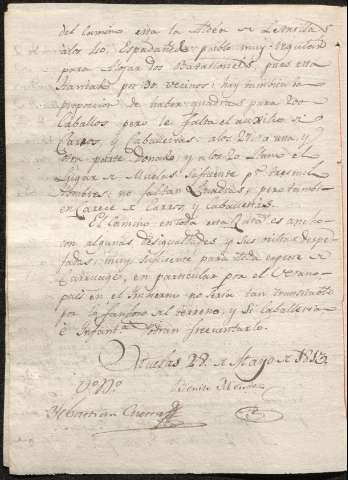 del Camino esta la Aldea de
a los 40, Espadañedo pueblo muy regular
para alojar dos Batallones, pues esta
por 30 vecinos: hay tambien la
proporcion de haber quadras para 200
Caballos pero le falta el auxilio de
Carros, y Caballerias: a los 27' a una y
otra parte Donado y a los 20 llano el
Lugar de Muelas: suficiente pª tres mil
hombres: no faltan Quadras, pero tambien
Carece de Carros, y caballerias.
El Camino en toda esta Ruta es ancho
con algunas desigualdades y sus orillas despe-
jadas: muy suficiente para toda especie de
Carruage, en particular por el Verano
pues en el Invierno no seria tan transitable
por lo fangoso del terreno, y si Caballeria
é Infantª podran frecuentarlo.
Muelas 28 de Mayo de 1813.
Vº Bº Vicente
Sebastian Guerra